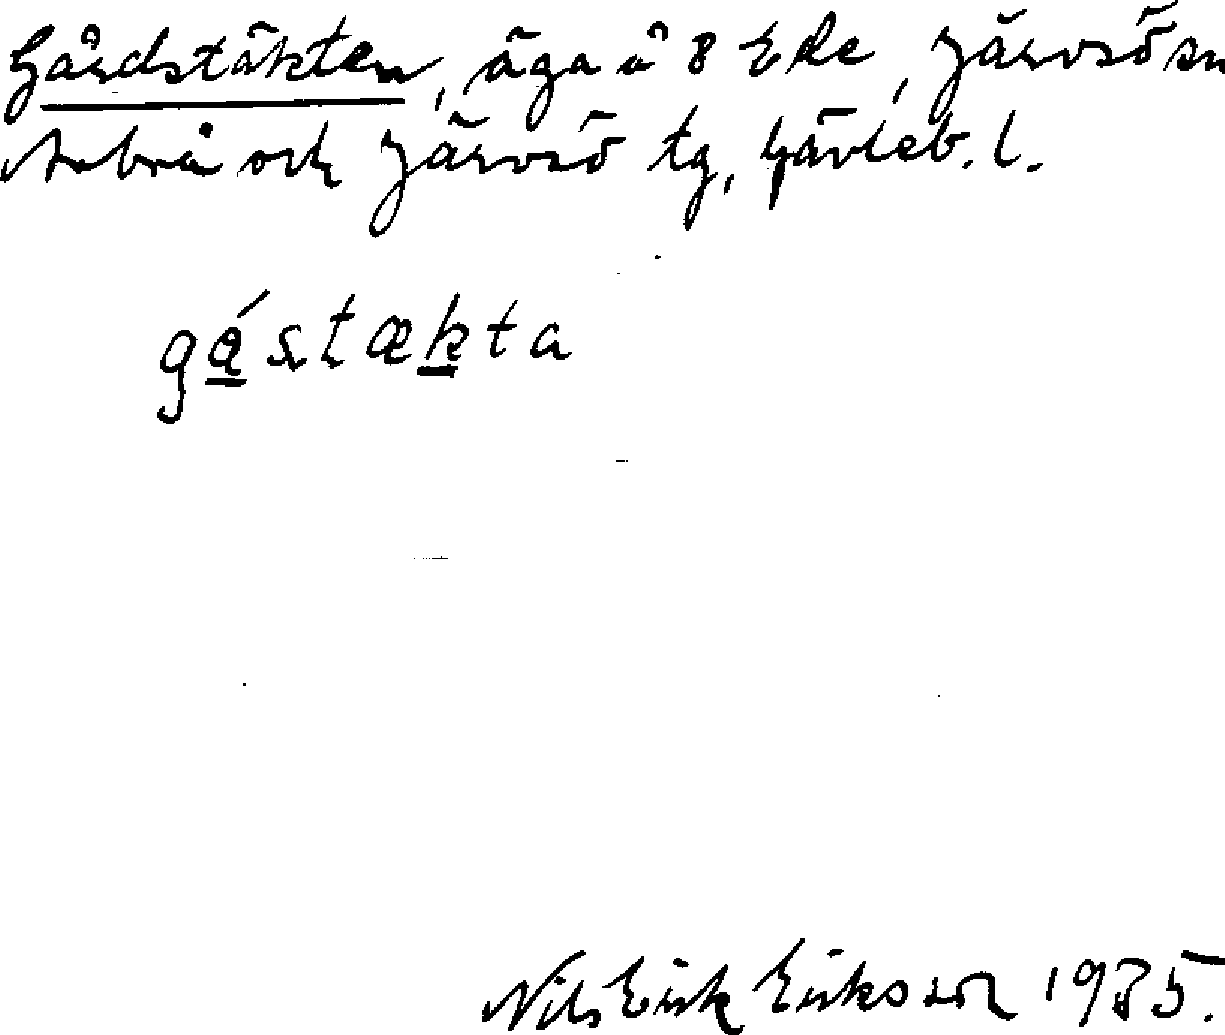 Gårdstäkten, äga å 8 Ede, Järvsö sn
Arbrå och Järvsö tg, Gävleb. l.
gástækta
Nils Erik Eriksson 1935.